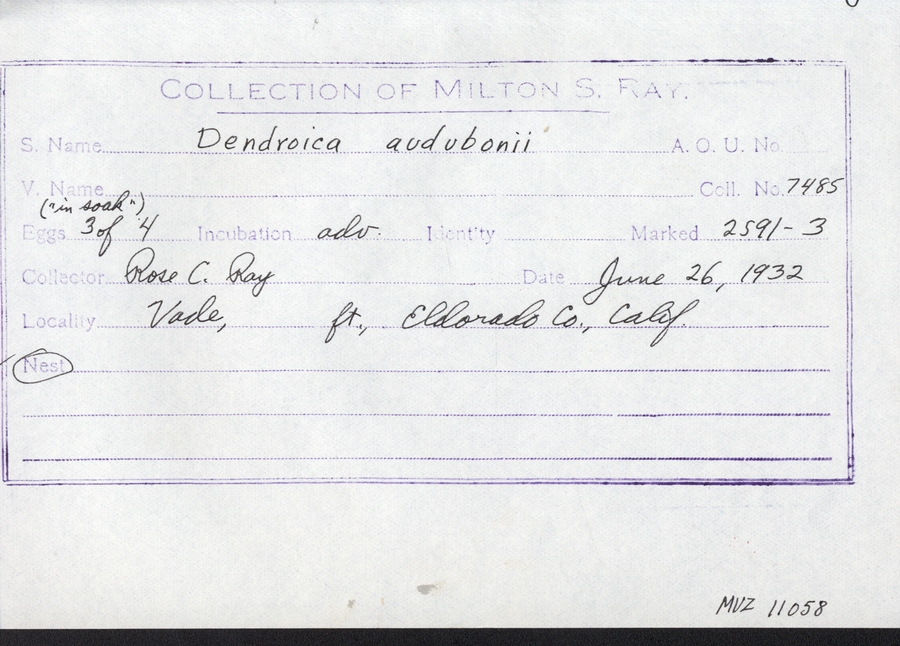 COLLECTION OF MILTON S. RAY.
S. Name Dendroica audubonii A. O. U. No.
V. Name Coll. No. 7485
("in soak")
Eggs 3 of 4 Incubation adv. Identity Marked 2591-3
Collector Rose C. Ray Date June 26, 1932
Locality Vade, ft., Eldorado Co., Calif.
Nest
MVZ 11058